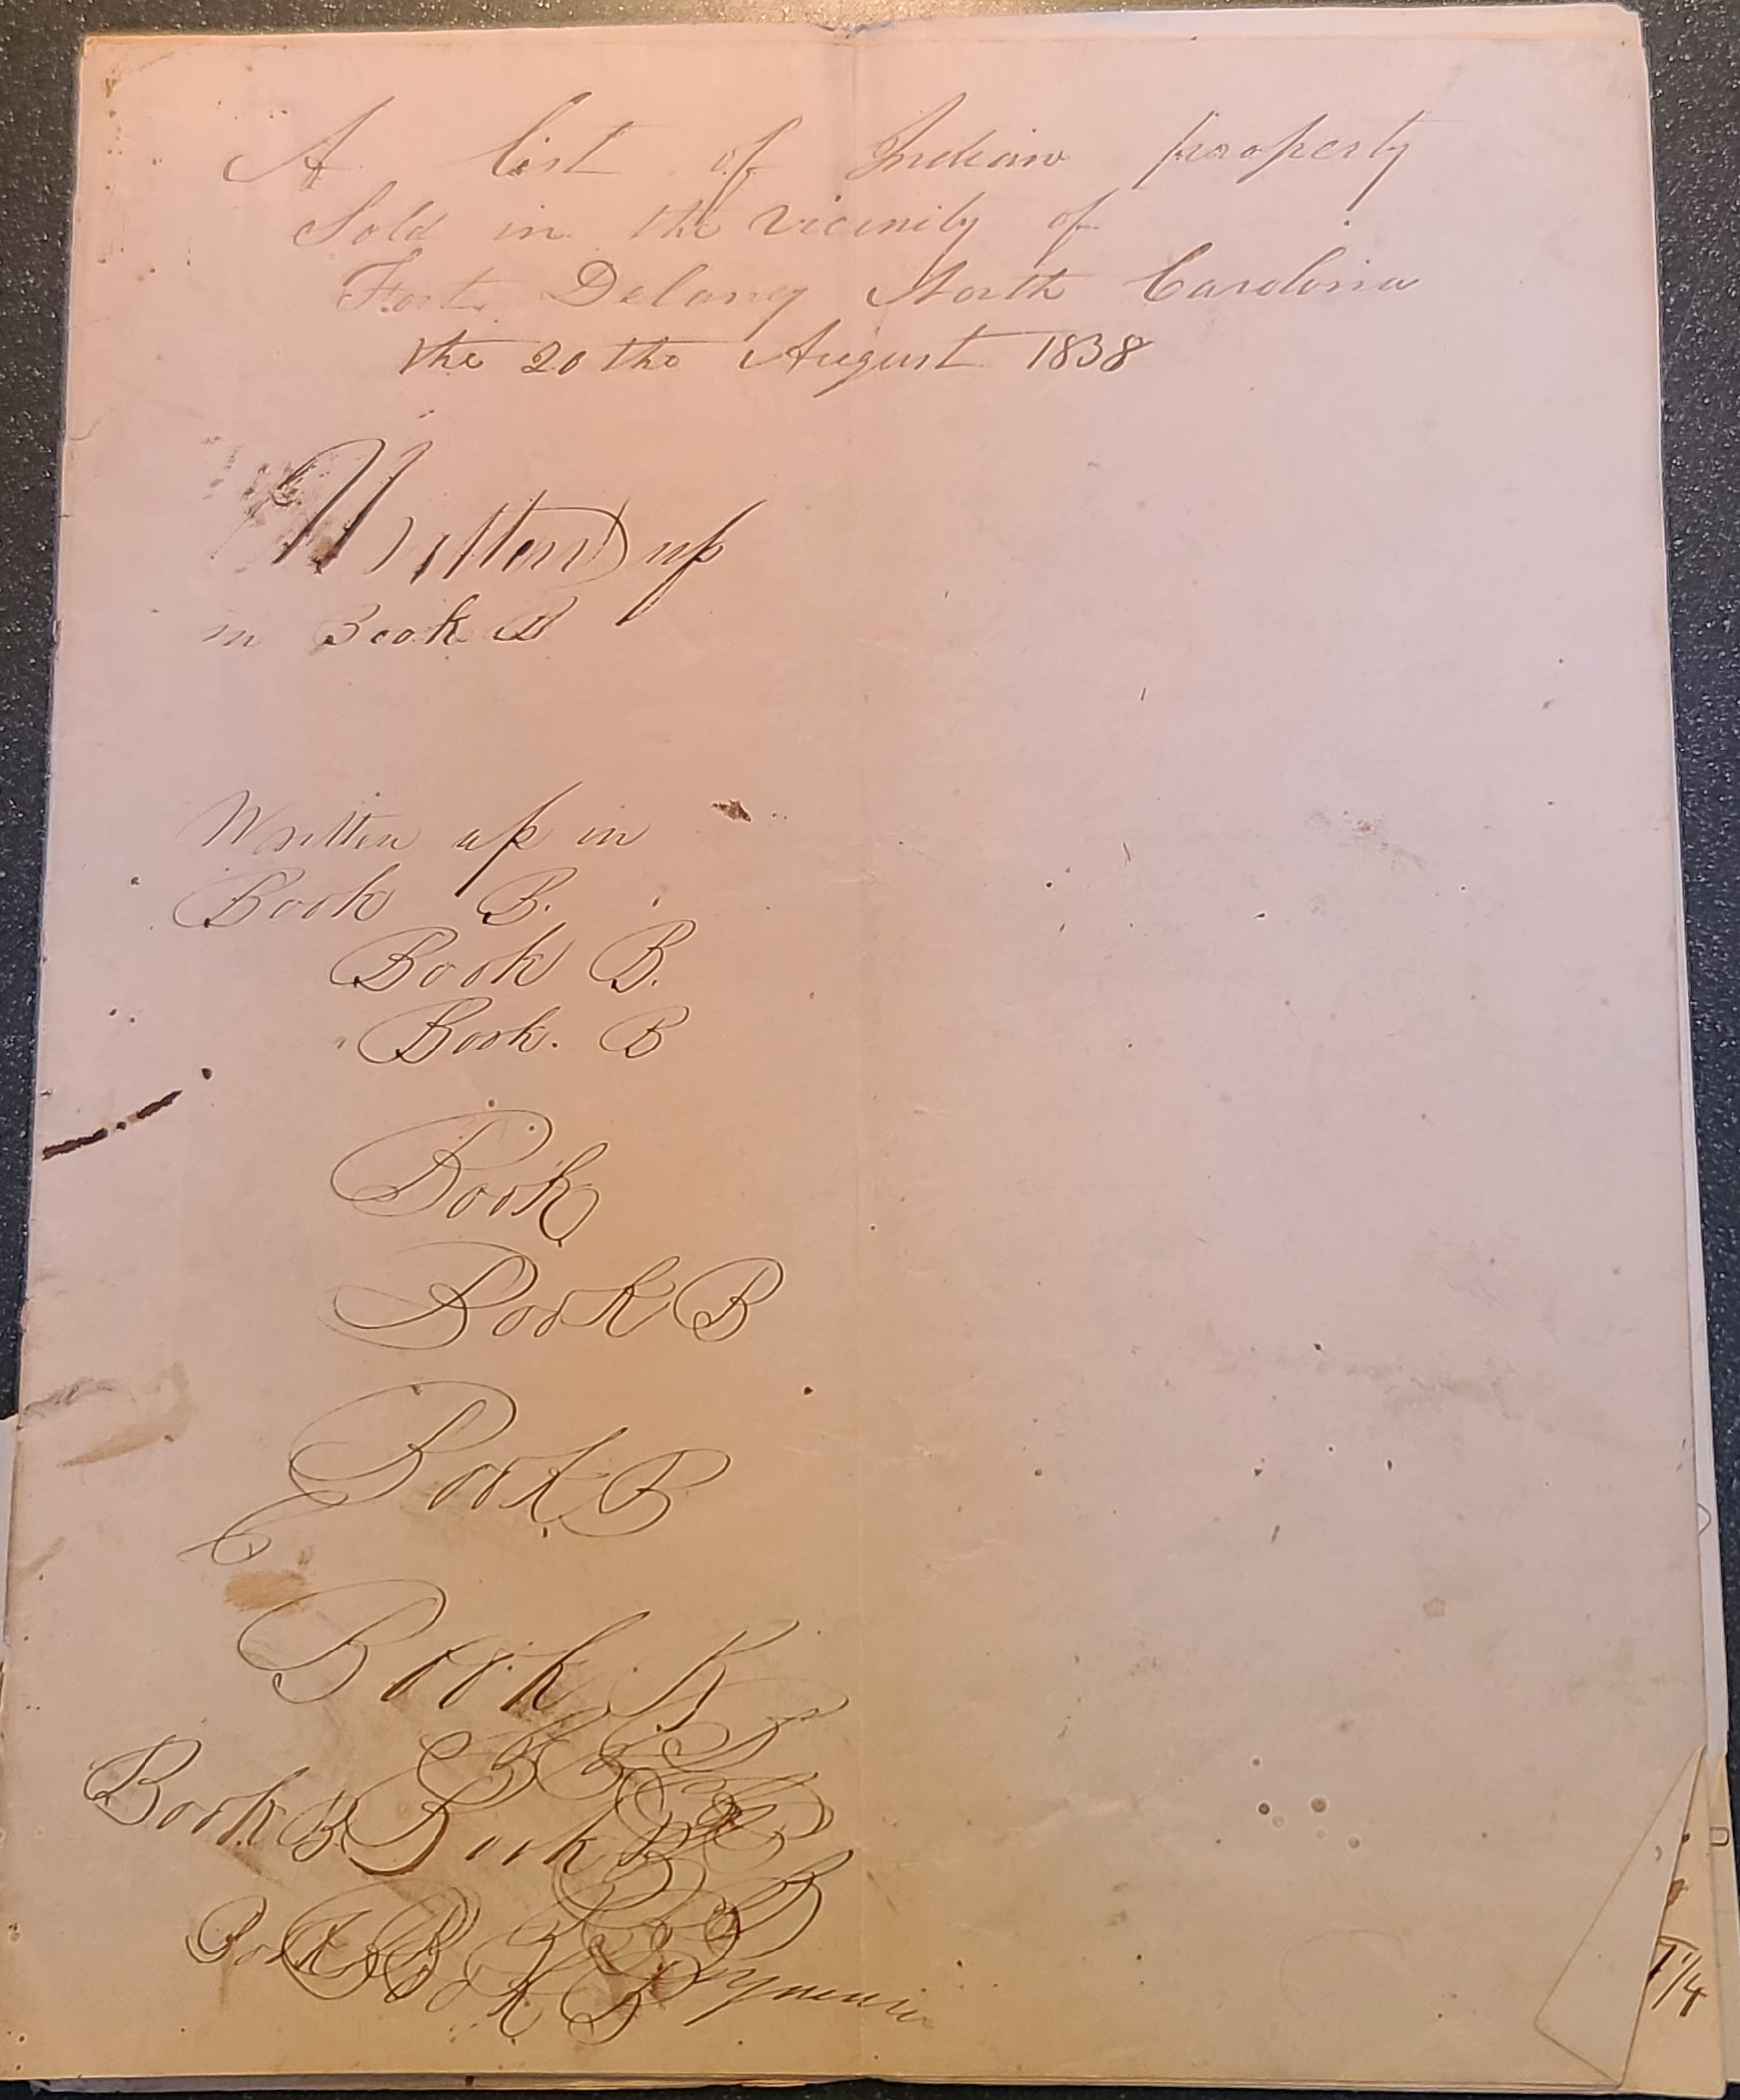 A list of Indian property
Sold in the vicinity of
Fort Delany North Carolina
the 20 the August 1838
Written up
in Book B
Written up in
Book B.
Book B.
Book. B
Book
Book B
Book B
Book
Book B Book
Book B Book B
7 1/4